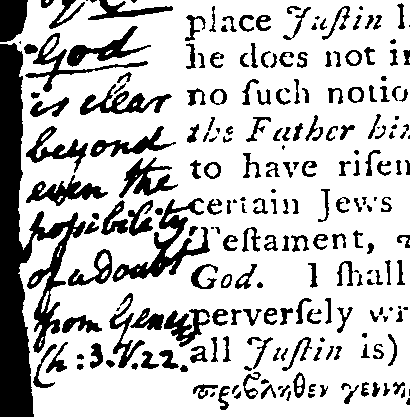 God
is clear
beyond
even the
poſsibility
of a Doubt
from Geneſis
Ch: 3. V. 22.
place Juſtin
he does not
no ſuch
the Father
to have riſen
certain Jews
Teſtament,
God. I ſhall
perverſely
all Juſtin is)
προβληθεν